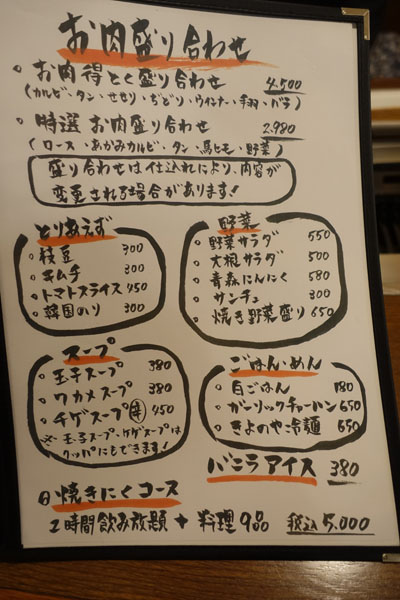 お肉盛り合わせ
・お肉得とく盛り合わせ 4,500
(カルビ・タン・せせり・ぢどり・ウインナー・手羽・バラ)
・特選 お肉盛り合わせ 2,980
(ロース・あかみカルビ・タン・馬ヒモ・野菜)
盛り合わせは仕込れにより、内容が
変更される場合があります!
とりあえず
。枝豆 300
。キムチ 300
。トマトスライス 450
。韓国のり 300
野菜
。野菜サラダ 550
。大根サラダ 500
。青森にんにく 580
。サンチュ 300
。焼き野菜盛り 650
スープ
。玉子スープ 380
。ワカメスープ 380
。チゲスープ 辛 450
※玉子スープ・チゲスープは
クッパにもできます!
ごはん・めん
。白ごはん 180
。ガーリックチャーハン 650
。きよのや冷麺 650
バニラアイス 380
焼きにくコース
2時間飲み放題 + 料理9品 税込 5,000